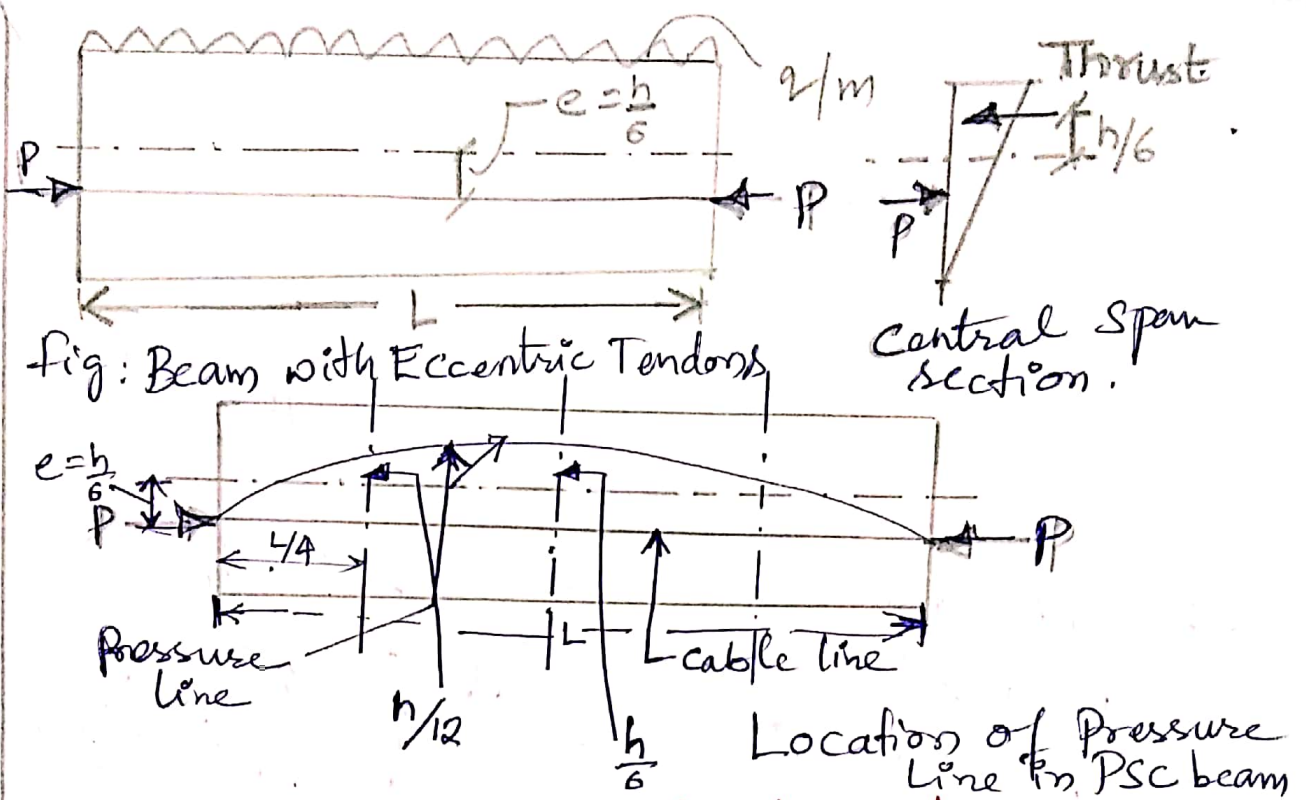 q/m
e = h/6
Thrust
h/6
P
P
P
L
fig: Beam with Eccentric Tendons
Central Span
section.
e = h/6
P
P
L/4
L
Pressure
line
Cable line
h/12
h/6
Location of Pressure
Line in PSC beam